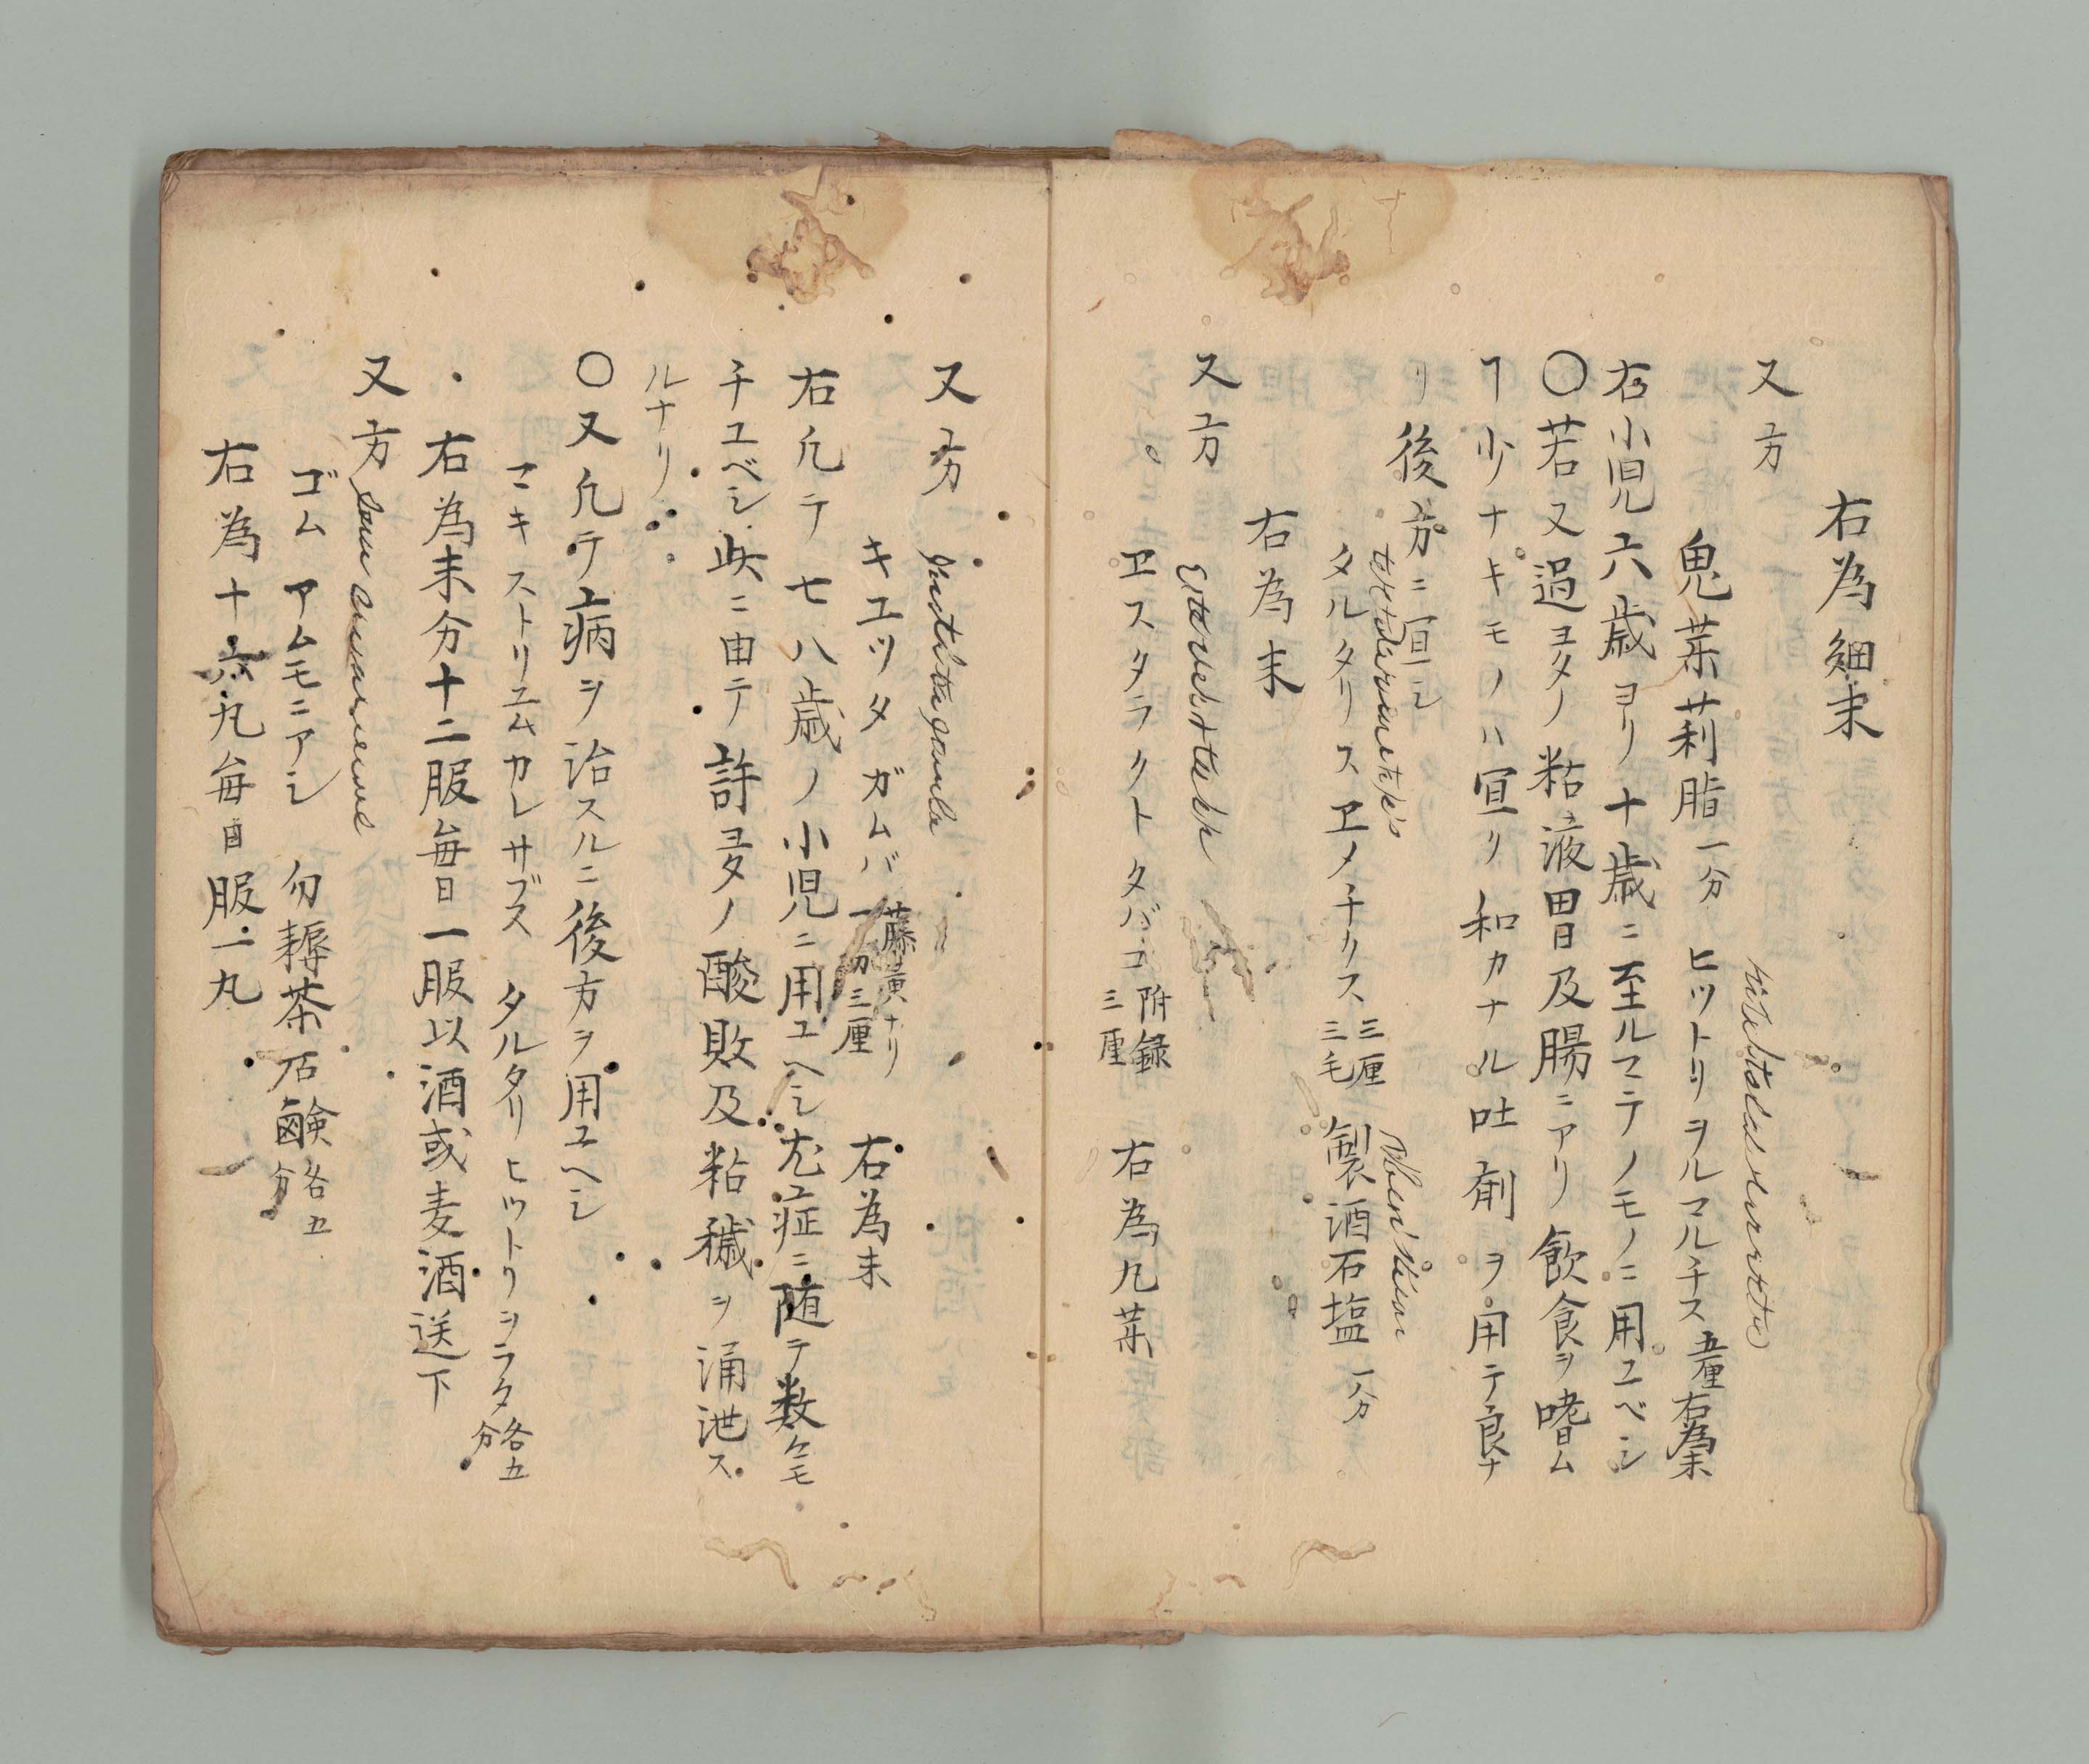 右為細末
又方
鬼茱莉脂一分 ヒツトリヲルマルチス五厘右為末
右小児六歳ヨリ十歳ニ至ルマテノモノニ用ユベシ
〇若又過ヨタノ粘液胃及腸ニアリ飲食ヲ嗜ム
ヿ少ナキモノハ宜リ和カナル吐剤ヲ用テ良ナ
リ後方ニ宜シ
タルタリスヱメチリス三厘三毛 製酒石塩一分
右為末
又方
ヱスタラクトタバコ附録三厘 右為九菜
又方
キユツタガムバ藤黄ナリ一分三厘 右為末
右凢テ七八歳ノ小児ニ用ユヘシ尤症ニ随テ数々モ
チユベシ此ニ由テ許ヨタノ酸敗及粘穢ヲ涌泄ス
ルナリ
〇又凢テ病ヲ治スルニ後方ヲ用ユヘシ
マキストリユムカレサブス タルタリヒツトリヲラタ各五分
右為末分十二服毎日一服以酒或麦酒送下
又方
ゴムアムモニアシ 勿耨茶石鹸各五分
右為十六丸毎日服一丸